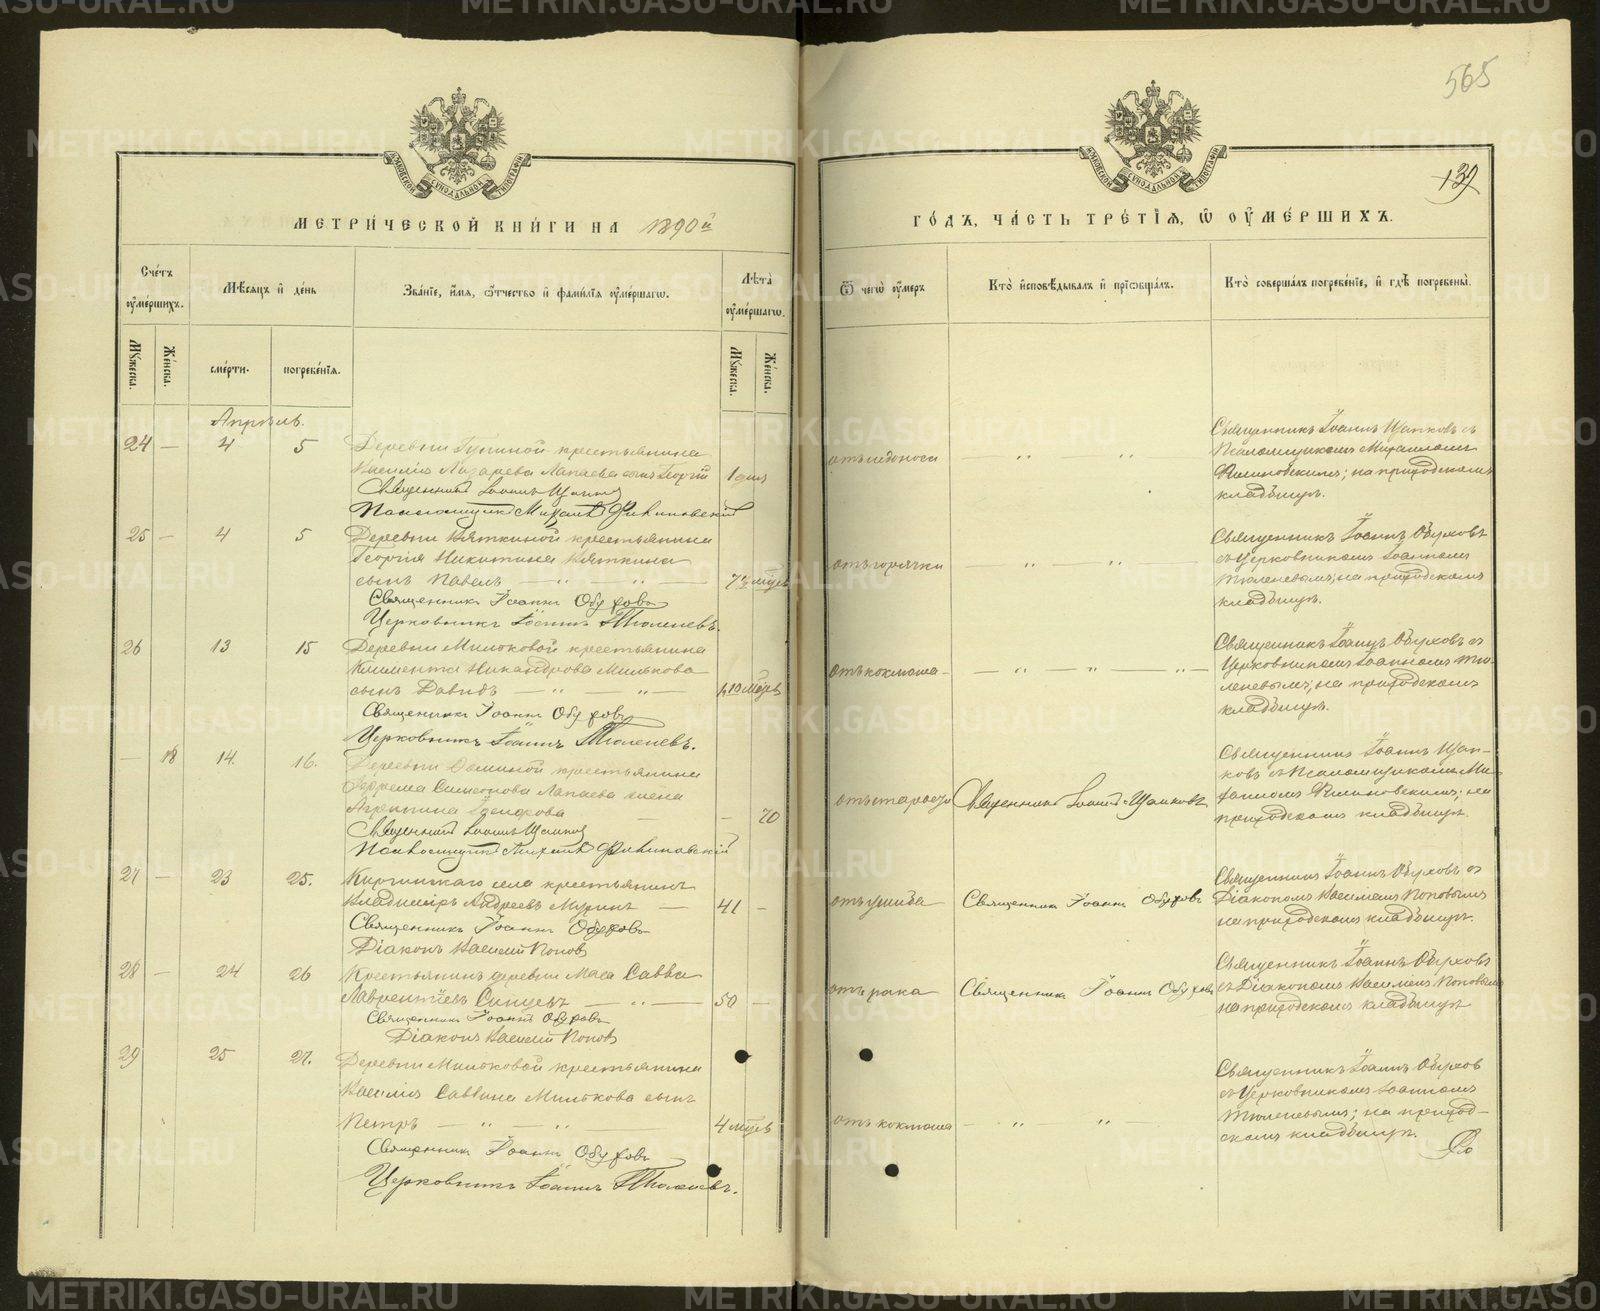 565
139
МЕТРИ́ЧЕСКОЙ КНИ́ГИ НА 1890й
ГО́ДЪ, ЧА́СТЬ ТРЕ́ТІѦ, Ѿ ОУ҆МЕ́РШИХЪ.
Сче́тъ оу҆ме́ршихъ.
Мѣ́сяцъ и҆ де́нь
Зва́нїе, и҆́мя, ѻ҆́тчество и҆ фами́лїя оу҆ме́ршагѡ.
Лѣ́та оу҆ме́ршагѡ.
Ѿ чегѡ̀ оу҆́меръ
Кто̀ и҆сповѣ́дывалъ и҆ прїѡбща́лъ.
Кто̀ соверша́лъ погребе́нїе, и҆ гдѣ̀ погребены̀.
Му́жеска.
Же́нска.
сме́рти.
погребе́нїя.
Му́жеска.
Же́нска.
Апрѣль.
24 — 4 5 Деревни крестьянина
Василія Лазарева Лапаева сынъ Георгій 1 дня
Священникъ Іоаннъ Щапковъ
Псаломщикъ Михаилъ Филиновскій
отъ недоноси — " "
Священникъ Іоаннъ Щапковъ съ
Псаломщикомъ Михаиломъ
Филиновскимъ; на приходскомъ
кладбищѣ.
25 — 4 5 Деревни Вяткиной крестьянина
Георгія Никитина Вяткина
сынъ Павелъ — " — " —
Священникъ Іоаннъ Обуховъ
Церковникъ Іоаннъ Тюленевъ.
отъ горячки — " — " —
Священникъ Іоаннъ Обуховъ
съ Церковникомъ Іоанномъ
Тюленевымъ; на приходскомъ
кладбищѣ.
26 13 15 Деревни Мильковой крестьянина
Климента Никандрова Милькова
сынъ Давидъ — " — " —
Священникъ Іоаннъ Обуховъ
Церковникъ Іоаннъ Тюленевъ.
отъ кокшоша — " — " — "
Священникъ Іоаннъ Обуховъ съ
Церковникомъ Іоанномъ Тю-
леневымъ; на приходскомъ
кладбищѣ.
— 18 14. 16. Деревни крестьянина
Ефрема Симеонова Лапаева жена
Агрипина — 70
Священникъ Іоаннъ Щапковъ
Псаломщикъ Михаилъ Филиновскій
отъ старости Священникъ Іоаннъ Щапковъ
Священникъ Іоаннъ Щап-
ковъ съ Псаломщикомъ Ми-
хаиломъ Филиновскимъ; на
приходскомъ кладбищѣ.
27 — 23 25. Киргишкаго села крестьянинъ
Владиміръ Андреевъ — 41 —
Священникъ Іоаннъ Обуховъ
Діаконъ Василій Поповъ
отъ ушиба Священникъ Іоаннъ Обуховъ
Священникъ Іоаннъ Обуховъ съ
Діакономъ Василіемъ Поповымъ
на приходскомъ кладбищѣ.
28 — 24 26 Крестьянинъ деревни Маса Савва
Лаврентіевъ Синцевъ — " — 50 —
Священникъ Іоаннъ Обуховъ
Діаконъ Василій Поповъ
отъ рака Священникъ Іоаннъ Обуховъ
Священникъ Іоаннъ Обуховъ
съ Діакономъ Василіемъ Поповымъ
на приходскомъ кладбищѣ
29 25 27. Деревни Мильковой крестьянина
Василія Саввина Милькова сынъ
Петръ — " — " 4 мцевъ
Священникъ Іоаннъ Обуховъ
Церковникъ Іоаннъ Тюленевъ.
отъ кокшоша — " — " —
Священникъ Іоаннъ Обухов
съ Церковникомъ Іоанномъ
Тюленевымъ; на приход-
скомъ кладбищѣ.
METRIKI.GASO-URAL.RU